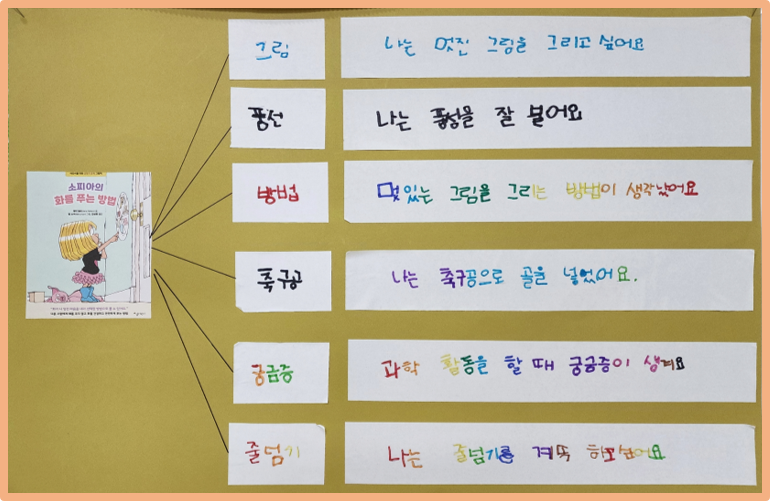 소피아의
화를 푸는 방법
그림
나는 멋진 그림을 그리고 싶어요
풍선
나는 풍성을 잘 불어요
방법
멋있는 그림을 그리는 방법이 생각났어요
축구공
나는 축구공으로 골을 넣었어요.
궁금증
과학 활동을 할 때 궁긍증이 생겨요
줄넘기
나는 줄넘기를 계똑